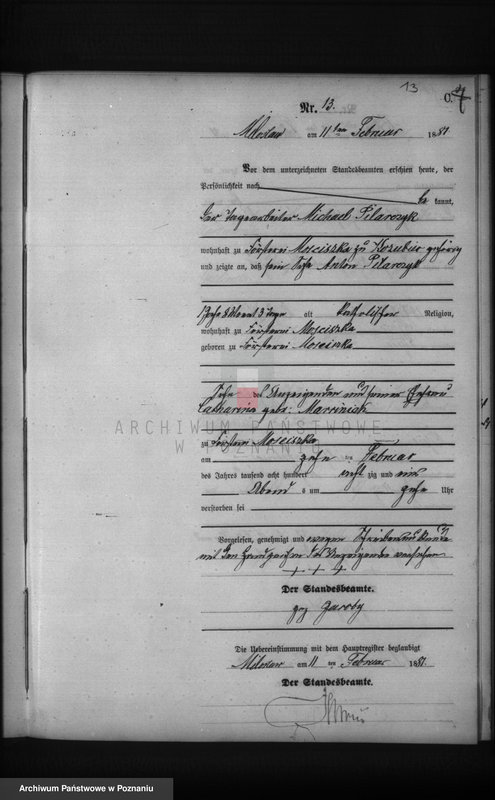 13
C.
Nr. 13.
Miloslaw am 11ten Februar 1881
Vor dem unterzeichneten Standesbeamten erschien heute, der
Persönlichkeit nach
be kannt,
der Tagearbeiter Michael Pilarczyk
wohnhaft zu Försterei Mosciszka zu Kozubiec gehörig
und zeigte an, daß sein Sohn Anton Pilarczyk
alt katholischer Religion,
wohnhaft zu Försterei Mosciszka
geboren zu Försterei Mosciszka
Sohn des Anzeigenden und seiner Ehefrau
Catharina geb: Marciniak
ARCHIWUM PAŃSTWOWE
W POZNANIU
zu Försterei Mosciszka
am zehn ten Februar
des Jahres tausend acht hundert acht zig und ein
Abend s um zehn Uhr
verstorben sei
Vorgelesen, genehmigt und wegen Schreibensunkunde
mit dem Handzeichen des Anzeigenden versehen
+ + +
Der Standesbeamte.
gez
Die Uebereinstimmung mit dem Hauptregister beglaubigt
Miloslaw am 11 ten Februar 1881.
Der Standesbeamte.
Archiwum Państwowe w Poznaniu